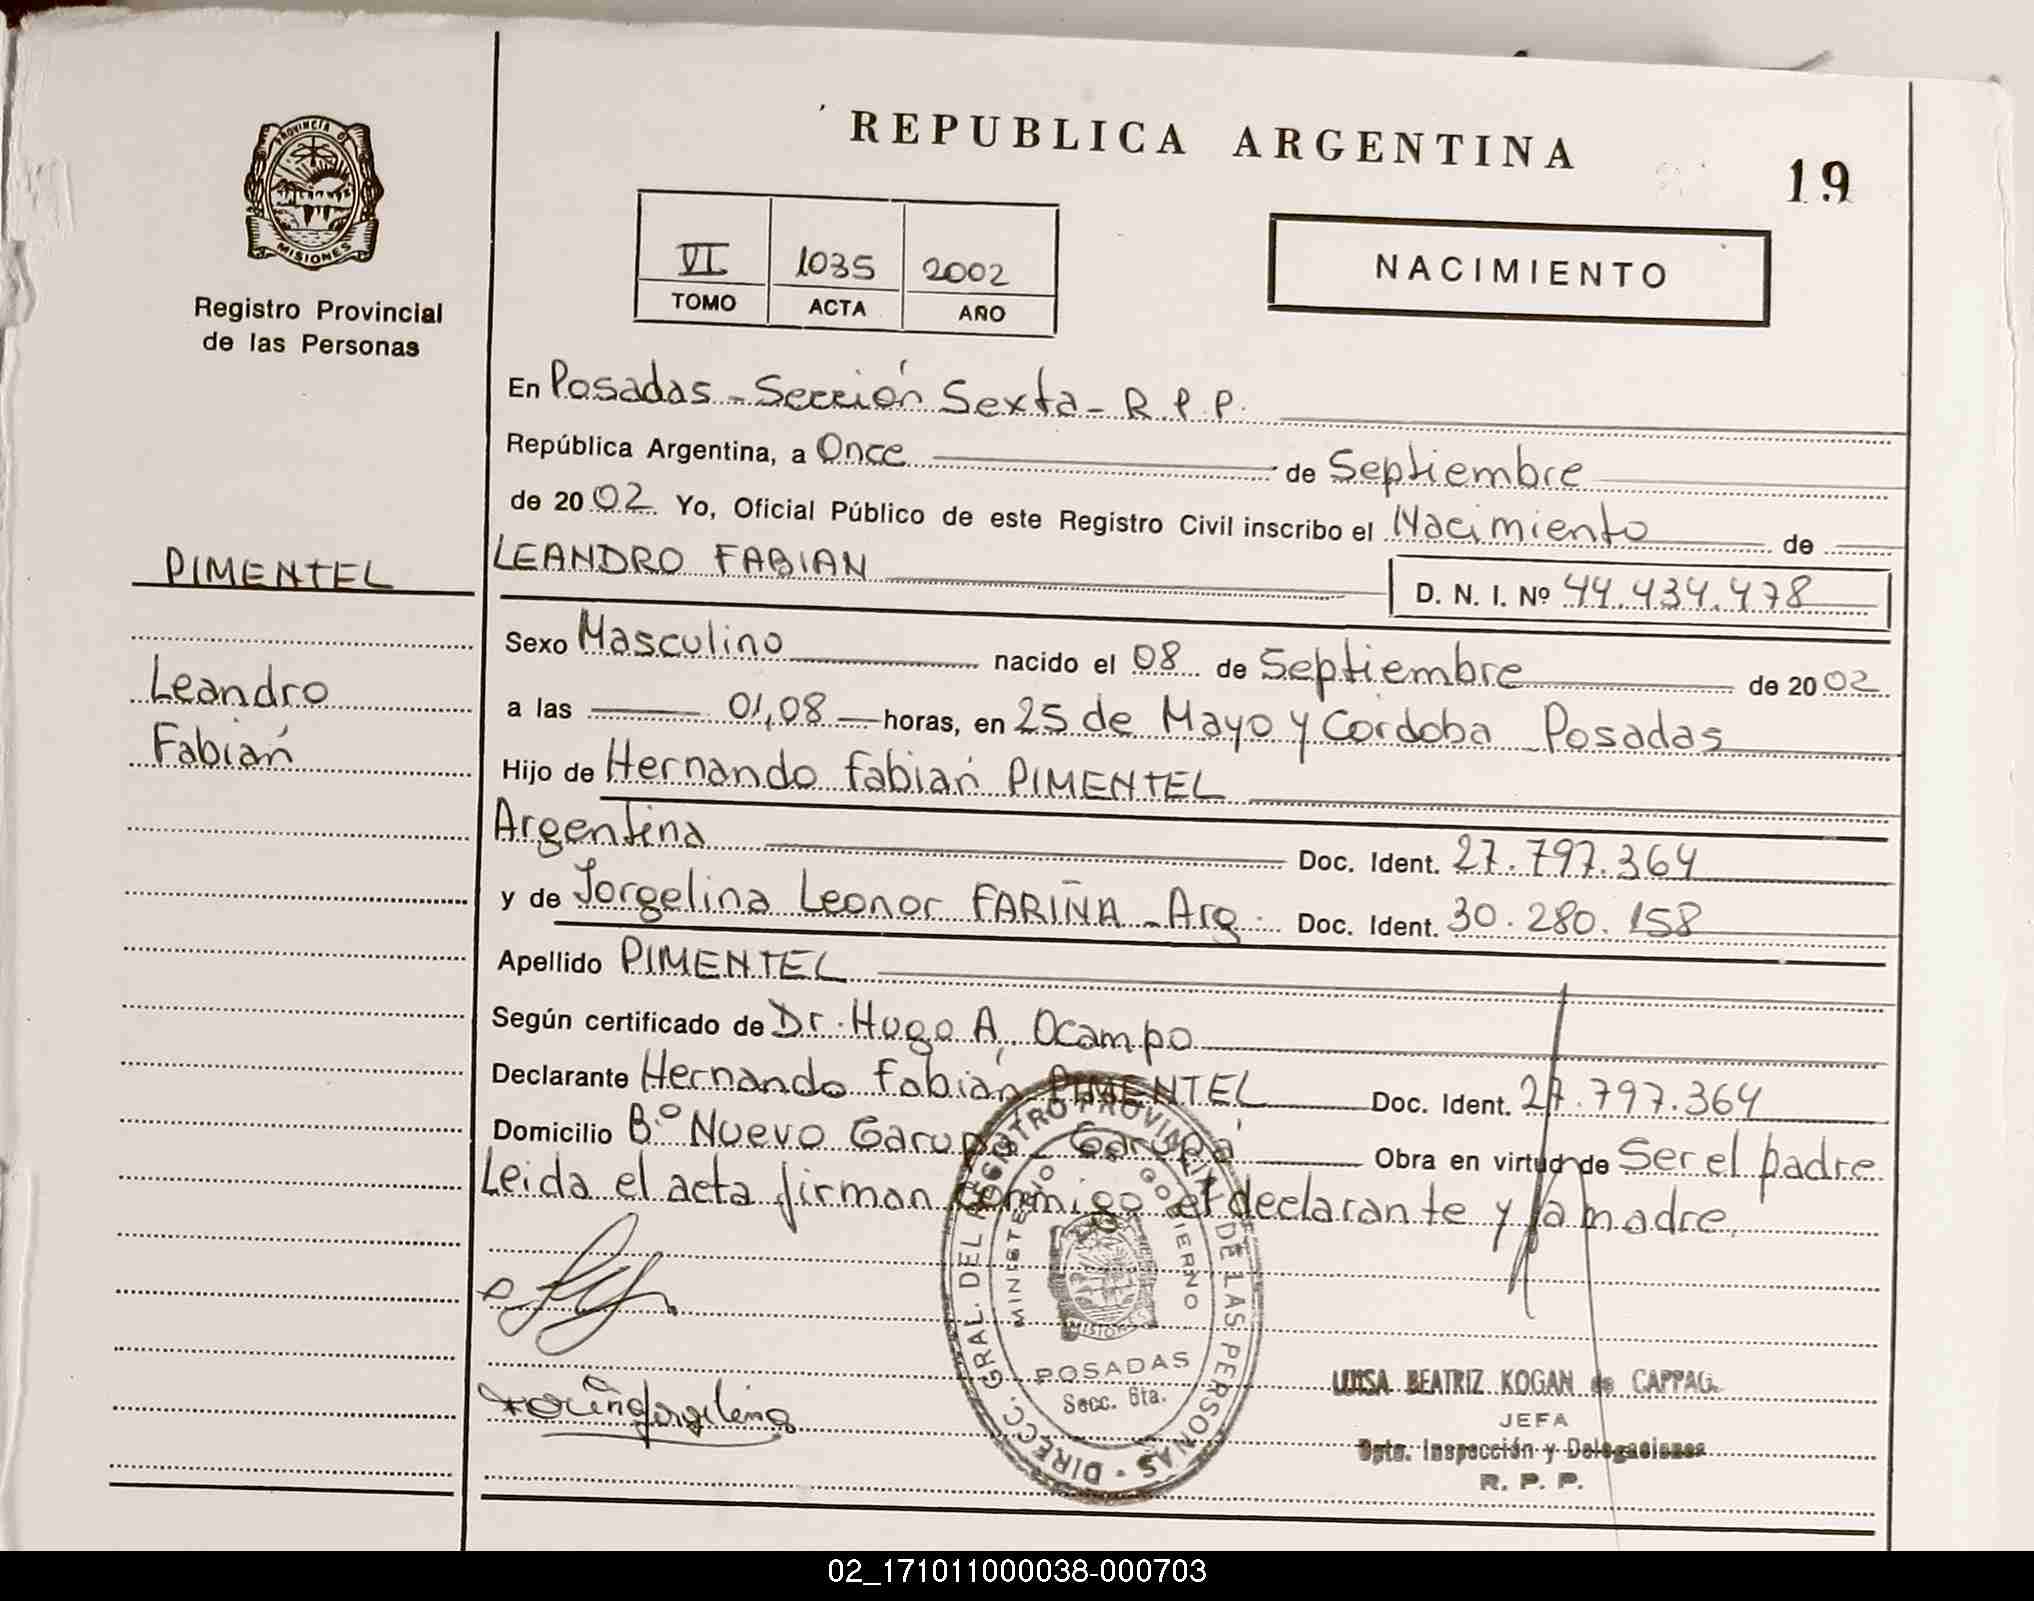 REPUBLICA ARGENTINA
19
PROVINCIA D
MISIONES
Registro Provincial
de las Personas
VI 1035 2002
TOMO ACTA AÑO
NACIMIENTO
En Posadas - Sección Sexta - R.P.P.
República Argentina, a Once de Septiembre
de 2002 Yo, Oficial Público de este Registro Civil inscribo el Nacimiento de
PIMENTEL
LEANDRO FABIAN D. N. I. Nº 44.434.478
Sexo Masculino nacido el 08 de Septiembre de 2002
Leandro
a las 01,08 horas, en 25 de Mayo y Cordoba - Posadas
Fabián
Hijo de Hernando Fabián PIMENTEL
Argentina Doc. Ident. 27.797.364
y de Jorgelina Leonor FARIÑA - Arg. Doc. Ident. 30.280.158
Apellido PIMENTEL
Según certificado de Dr. Hugo A. Ocampo
Declarante Hernando Fabián PIMENTEL Doc. Ident. 27.797.364
Domicilio Bº Nuevo Garupá - Garupá Obra en virtud de Ser el padre
Leida el acta firman conmigo el declarante y la madre.
DIRECC. GRAL. DEL REGISTRO PROVINCIAL DE LAS PERSONAS
MINISTERIO DE GOBIERNO
MISIONES
POSADAS
Secc. 6ta.
Fariña Jorgelina
LUISA BEATRIZ KOGAN de CAPPAG.
JEFA
Dpto. Inspección y Delegaciones
R. P. P.
02_171011000038-000703